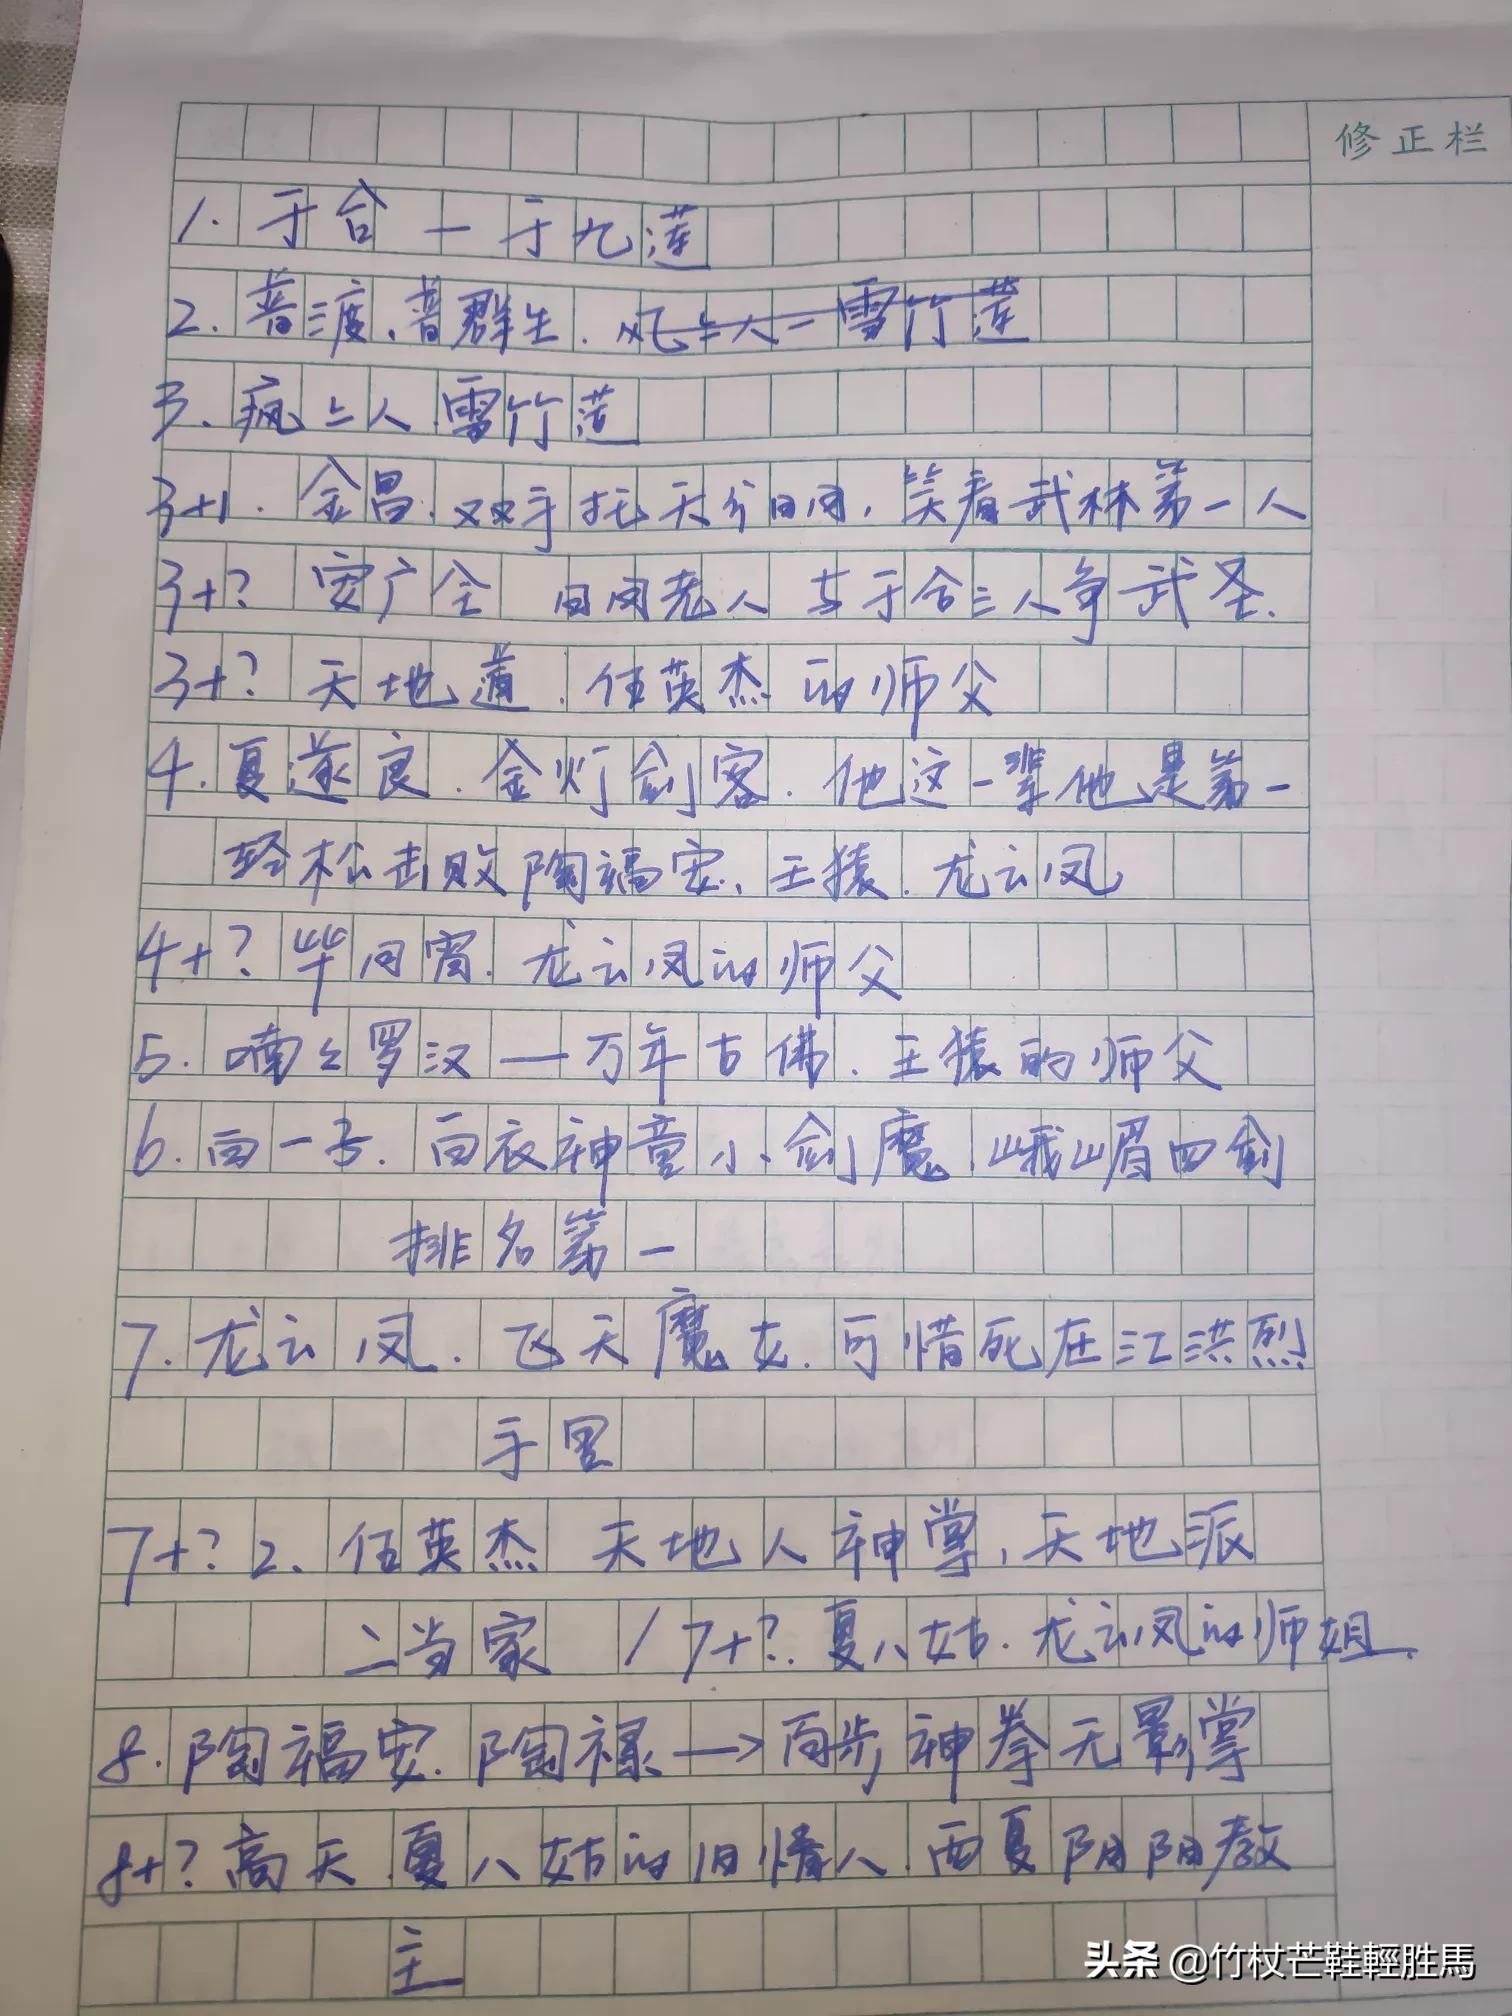 修正栏
1. 于合 — 于九莲
2. 普渡、普群生. 风上人一雪竹莲
3. 疯上人 雪竹莲
3+1. 金昌. 双手托天分日月, 笑看武林第一人
3+? 安广全 日月老人 与于合三人争武圣.
3+? 天地道. 任英杰的师父
4. 夏遂良. 金灯剑客. 他这一辈他是第一
轻松击败陶福安、王猿. 龙云凤
4+? 毕月霄. 龙云凤的师父
5. 喃喃罗汉 — 万年古佛. 王猿的师父
6. 白一子. 白衣神童小剑魔, 峨嵋四剑
排名第一
7. 龙云凤. 飞天魔女. 可惜死在江洪烈
手里
7+? 2. 任英杰 天地人神掌, 天地派
二当家 / 7+?. 夏八姑. 龙云凤的师姐.
8. 陶福安. 陶禄 —> 百步神拳无影掌
8+? 高天 夏八姑的旧情人. 西夏阴阳教
主
头条 @竹杖芒鞋輕胜馬